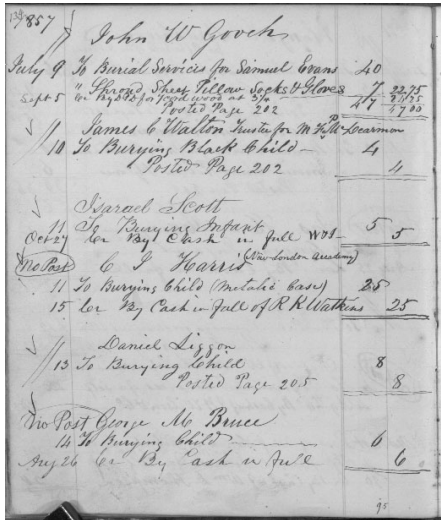 1857
John W Gooch
July 9 To Burial Services for Samuel Evans 40
" Shroud Sheet Pillow Socks & Gloves 7 22.75
Sept 5 Cr By for food wood at 3/4 47 24.25
Posted Page 202 47 00
James C Walton Trustee for M F Dearmon
10 To Burying Black Child — 4
Posted Page 202 4
Isarael Scott
11 To Burying Infant 5
Oct 27 Cr By Cash in full 5
No Post C J Harris (New London Academy)
11 To Burying Child (Metalic Case) 25
15 Cr By Cash in full of R R Watkins 25
Daniel Liggon
13 To Burying Child 8
Posted Page 205 8
No Post George M Bruce
14 To Burying Child 6
Aug 26 Cr By Cash in full 6
95